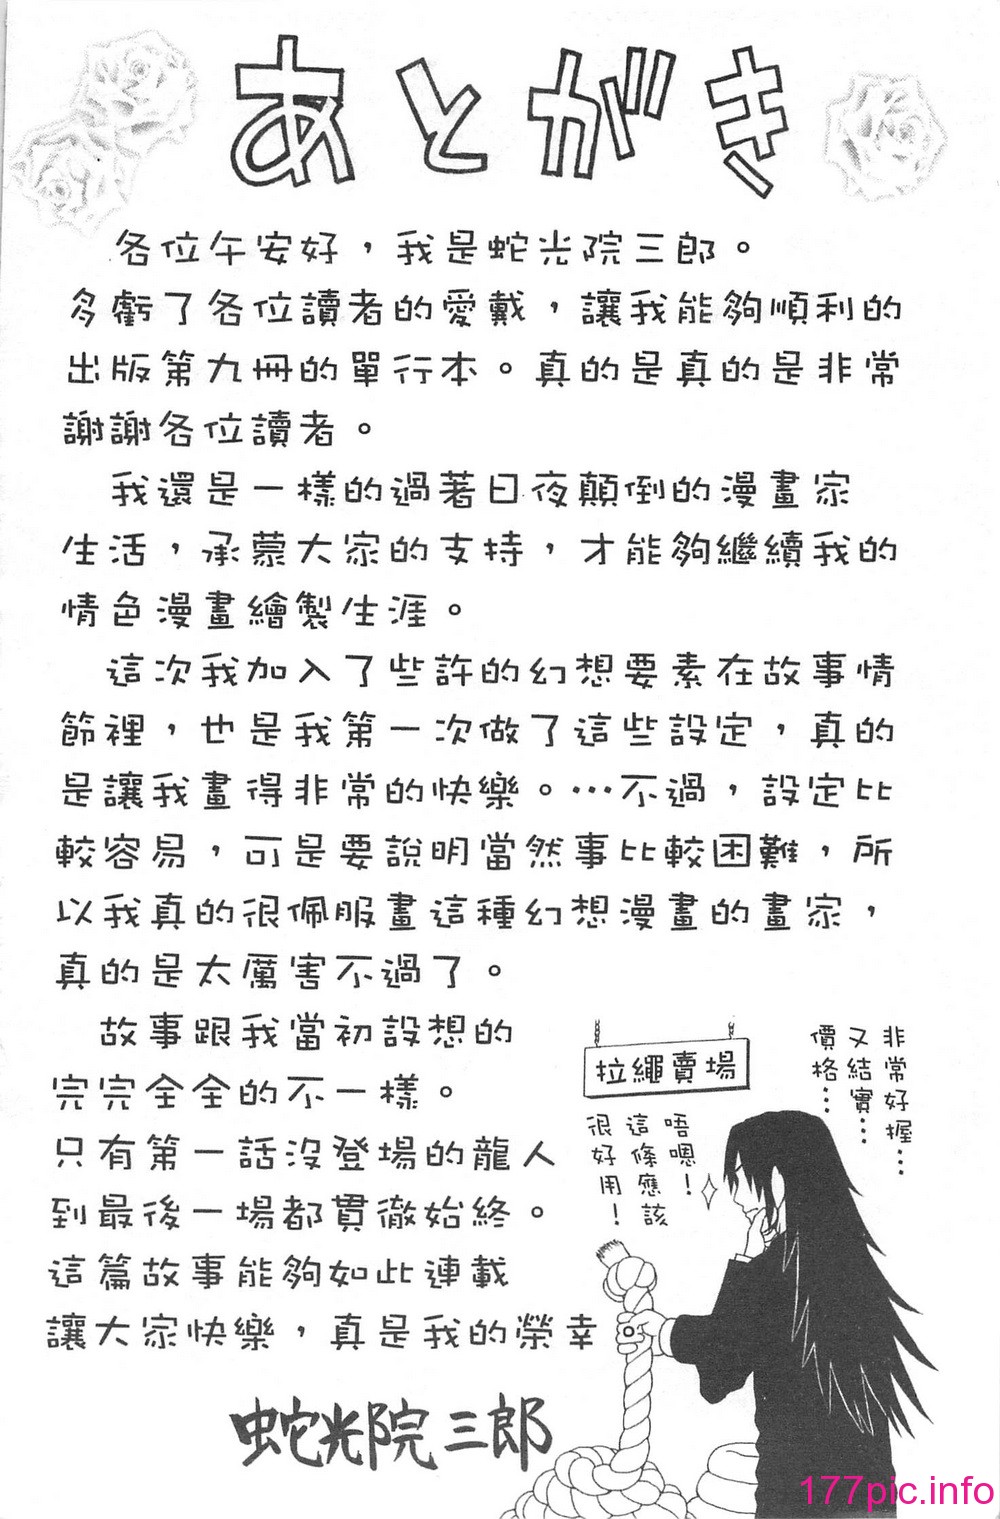 あとがき
各位午安好，我是蛇光院三郎。
多虧了各位讀者的愛戴，讓我能夠順利的
出版第九冊的單行本。真的是真的是非常
謝謝各位讀者。
我還是一樣的過著日夜顛倒的漫畫家
生活，承蒙大家的支持，才能夠繼續我的
情色漫畫繪製生涯。
這次我加入了些許的幻想要素在故事情
節裡，也是我第一次做了這些設定，真的
是讓我畫得非常的快樂。…不過，設定比
較容易，可是要說明當然事比較困難，所
以我真的很佩服畫這種幻想漫畫的畫家，
真的是太厲害不過了。
故事跟我當初設想的
完完全全的不一樣。
只有第一話沒登場的龍人
到最後一場都貫徹始終。
這篇故事能夠如此連載
讓大家快樂，真是我的榮幸
蛇光院三郎
非常好握…
又結實…
價格…
拉繩賣場
唔嗯！
這條應該
很好用！
177pic.info